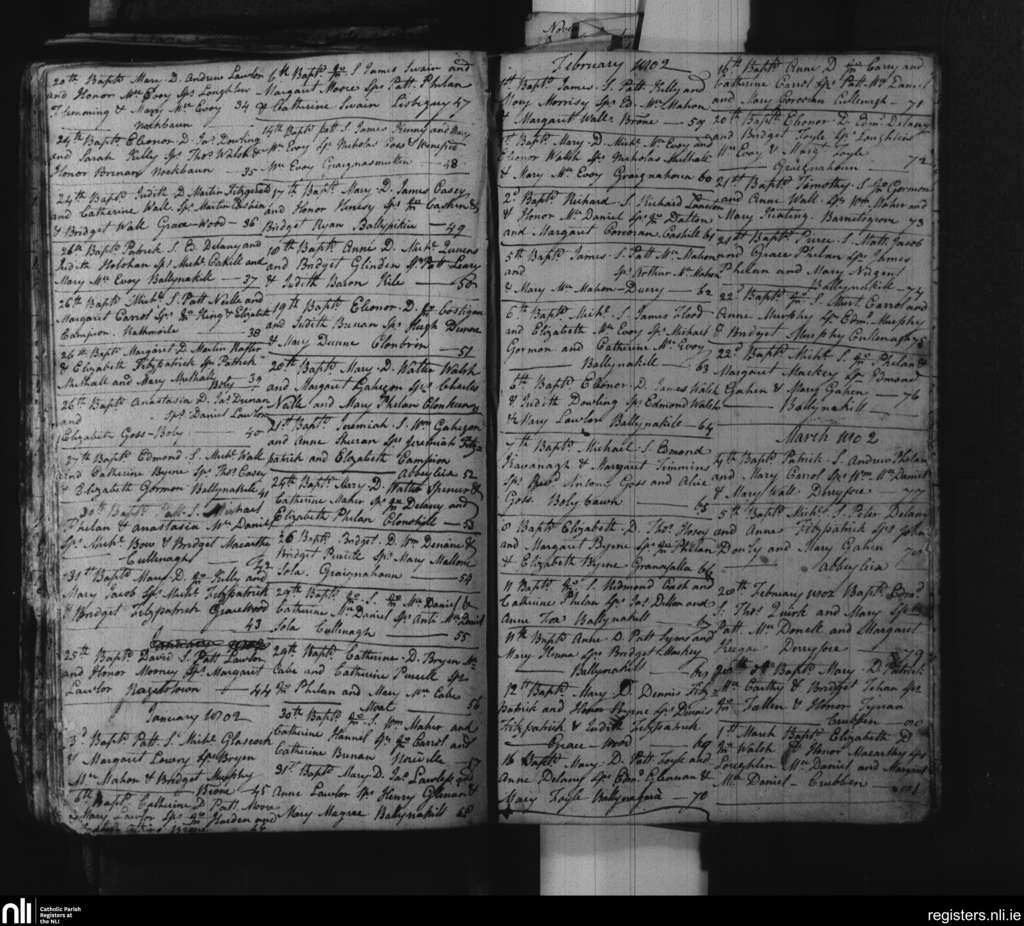 20th Bapts. Mary D. Andrew Lawlor
and Honor Mc. Evoy Sps. Loughlin
Flemming & Mary Mc. Evoy 34
Nockbaun
24th Bapts. Eleonor D. Jno. Dowling
and Sarah Kily Sps. Thos. Walsh &
Honor Brenan Nockbaun 35
24th Bapts. Judith D. Martin Fitzgerald
and Catherine Wall Sps. Martin
& Bridget Wall Grace-Wood 36
26th Bapts. Patrick S. Ed. Delany and
Judith Holohan Sps. Michl. Cahill and
Mary Mc. Evoy Ballynakill 37
26th Bapts. Michl. S. Patt Neille and
Margaret Carrol Sps. & Elizabeth
Campion 38
26th Bapts. Margaret D. Martin Rafter
& Elizabeth Fitzpatrick Sps. Patrick
Mulhall and Mary Mulhall
Boly 39
26th Bapts. Anastasia D. Jno. Dunan
and Sps. Daniel Lawlor
Elizabeth Goss-Boly 40
27th Bapts. Edmond S. Michl. Walk
and Catherine Byrne Sps. Thos. Casey
& Elizabeth Gormon Ballynakill 41
30th Bapts. Patt S. Michael
Phelan & Anastasia Mc. Daniel
Sps. Michl. Bow & Bridget Macarthy
Cullenagh 42
31st Bapts. Mary D. Kelly and
Mary Jacob Sps. Michl. Fitzpatrick
& Bridget Fitzpatrick Gracewood
43
25th Bapts. David S. Patt Lawlor
and Honor Mooney Sps. Margaret
Lawlor Ragetstown 44
January 1802
3d. Bapts. Patt S. Michl. Glascock
& Margaret Lowry Sps. Bryen
Mc. Mahon & Bridget Murphy
Brone 45
6th Bapts. Catherine D. Patt Moore
& Mary Lawlor Sps. Harden and
6th Bapts. S. James Swain and
Margaret Moore Sps. Patt. Phelan
& Catherine Swain 47
14th Bapts. Patt S. James Kinny and Mary
Mc. Evoy Sps. Nicholas and Wenefred
Mc. Evoy Graignasmutten 48
17th Bapts. Mary D. James Casey
and Honor Henesy Sps. Cashin &
Bridget Ryan Ballypikin 49
18th Bapts. Anne D. Michl.
and Bridget Glinden Sps. Patt Leary
& Judith Baron Kile 50
19th Bapts. Eleonor D. Costigan
and Judith Brenan Sps. Hugh Dunne
& Mary Dunne Clonbrin 51
20th Bapts. Mary D. Walter Walsh
and Margaret Gahegon Sps. Charles
Neille and Mary Phelan Clonkenny
21st Bapts. Jeremiah S. Wm. Gahegon
and Anne Sheran Sps. Jeremiah Fitz-
patrick and Elizabeth Campion
Abbeylix 52
25th Bapts. Mary D. Walter Spencer &
Catherine Maher Sps. Delany and
Elizabeth Phelan Clonkill 53
26 Bapts. Bridget D. Wm. &
Bridget Sps. Mary Mallone
Sola Graignahoun 54
29th Bapts. S. Mc. Daniel &
Catherine Mc. Daniel Sps. Anti. Mc. Daniel
Sola Cullenagh 55
29th Bapts. Catherine D. Bryen Mc.
Cabe and Catherine Purcell Sps.
Phelan and Mary Mc. Cabe
56
30th Bapts. S. Wm. Maher and
Catherine Sps. Carrol and
Catherine Brenan 57
31st Bapts. Mary D. Jno. Lawless and
Anne Lawlor Sps. Henry &
Mary Magrae Ballynakill 58
February 1802
1st. Bapts. James S. Patt Kelly and
Mary Morrisy Sps. Ed. Mc. Mahon
& Margaret Walls Brone 59
1st. Bapts. Mary D. Michl. Mc. Evoy and
Eleonor Walsh Sps. Nicholas Mulhall
& Mary Mc. Evoy Graignahoun 60
2d. Bapts. Richard S. Richard Lawlor
& Honor Mc. Daniel Sps. Dalton
and Margaret Corcoran Cashill 61
5th Bapts. James S. Patt Mc. Mahon
and Sps. Arthur Mc. Mahon
& Mary Mc. Mahon-Durry 62
6th Bapts. Michl. S. James Flood
and Elizabeth Mc. Evoy Sps. Michael
Gormon and Catherine Mc. Evoy
Ballynakill 63
6th Bapts. Eleonor D. James Walsh
& Judith Dowling Sps. Edmond Walsh
& Mary Lawlor Ballynakill 64
7th Bapts. Michael S. Edmond
Kavanagh & Margaret Timmins
Sps. Antony Goss and Alice
Goss Boly bawn 65
8 Bapts. Elizabeth D. Thos. Hosey
and Margaret Byrne Sps. Phelan
& Elizabeth Byrne Granafalla 66
11 Bapts. S. Redmond and
Catherine Phelan Sps. Jno. Dalton and
Anne Fox Ballynakill 67
11th Bapts. Anne D. Patt Lyons and
Mary Sps. Bridget Mackey
Ballynakill 68
12th Bapts. Mary D. Dennis Fitz-
patrick and Honor Byrne Sps. Dennis
Fitzpatrick & Judith Fitzpatrick
Grace-Wood 69
16 Bapts. Mary D. Patt Foyle and
Anne Delany Sps. Edm. Brennan &
Mary Foyle Ballynafard 70
16th Bapts. Anne D. Carry and
Catherine Carrol Sps. Patt Mc. Daniel
and Mary Corcoran Cullenagh 71
20th Bapts. Eleonor D. Edm. Delany
and Bridget Foyle Sps. Loughlin
Mc. Evoy & Margt. Foyle
Graignahoun 72
21st Bapts. Timothy S. Jno. Gormon
and Anne Wall Sps. Wm. Maher and
Mary Keating Barnetogrove 73
21st Bapts. Pierce S. Matt. Jacob
and Grace Phelan Sps. James
Phelan and Mary Nugent
Ballynakill 74
22d Bapts. S. Murt. Carrol and
Anne Murphy Sps. Edm. Murphy
& Bridget Murphy Cullenagh 75
22d. Bapts. Michl. S. Phelan &
Margaret Mackey Sps. Edmond
Gahen & Mary Gahen
Ballynakill 76
March 1802
4th Bapts. Patrick S. Andrew Phelan
and Mary Carrol Sps. Wm. Mc. Daniel
& Mary Wall Derryfore 77
5th Bapts. Michl. S. Peter Delany
and Anne Fitzpatrick Sps. John
Dowly and Mary Gahen
Abbeylix 78
20th February 1802 Bapts. Edmd.
S. Thos. Quirk and Mary Sps.
Patt. Mc. Donell and Margaret
Keegan Derryfore 79
Bapts. Mary D. Patrick
Mc. Carthy & Bridget Tehan Sps.
Fallen & Honor Tynan
Crubben 80
1st March Bapts. Elizabeth D.
Walsh & Honor Macarthy Sps.
Loughlin Mc. Daniel and Margaret
Mc. Daniel Crubben 81
nli
Catholic Parish
Registers at
the NLI
registers.nli.ie